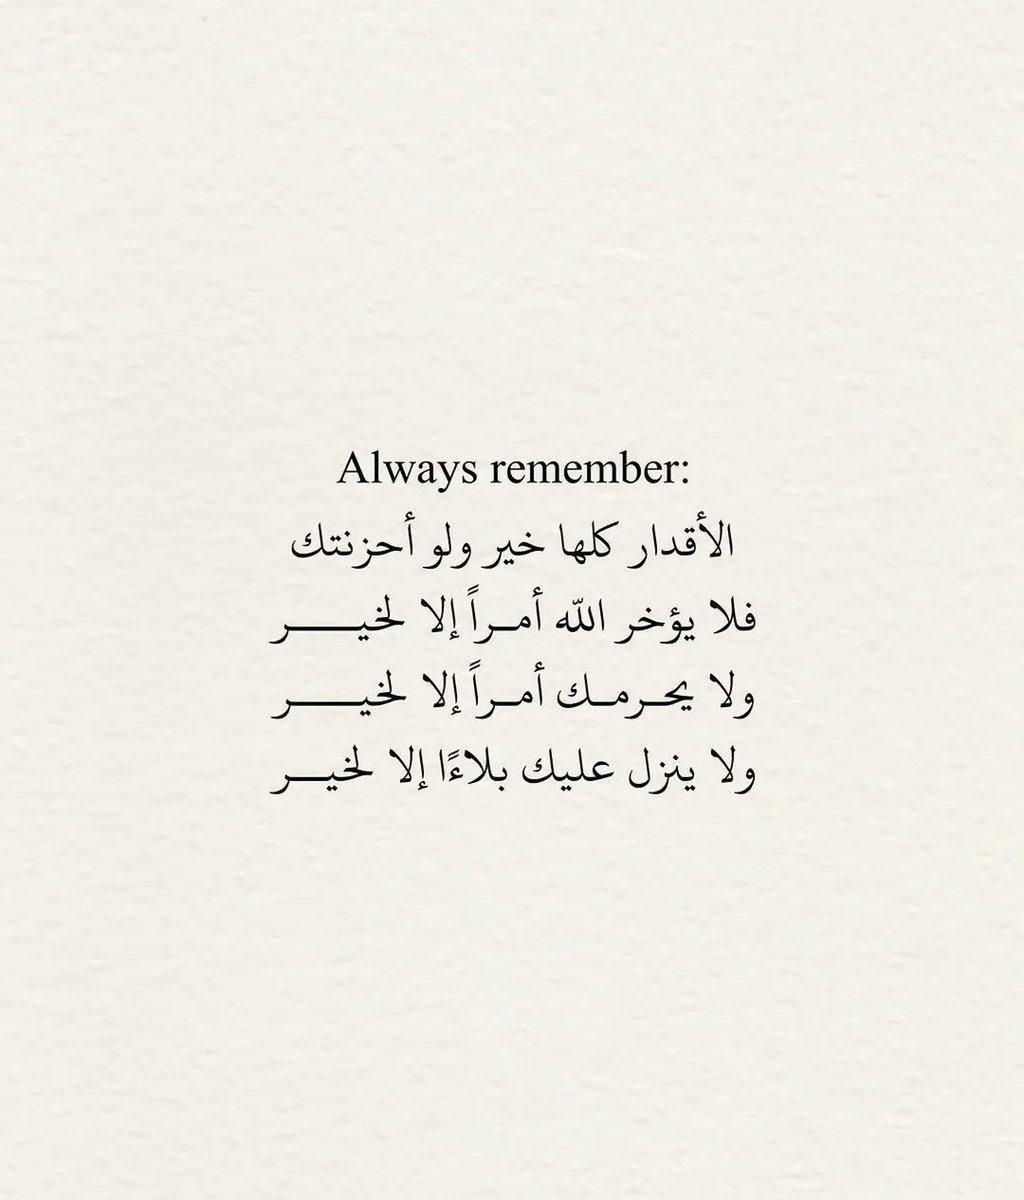 Always remember:
الأقدار كلها خير ولو أحزنتك
فلا يؤخر الله أمـراً إلا لخيـــــر
ولا يحـرمـك أمـراً إلا لخيـــــر
ولا ينزل عليك بلاءًا إلا لخيـــر